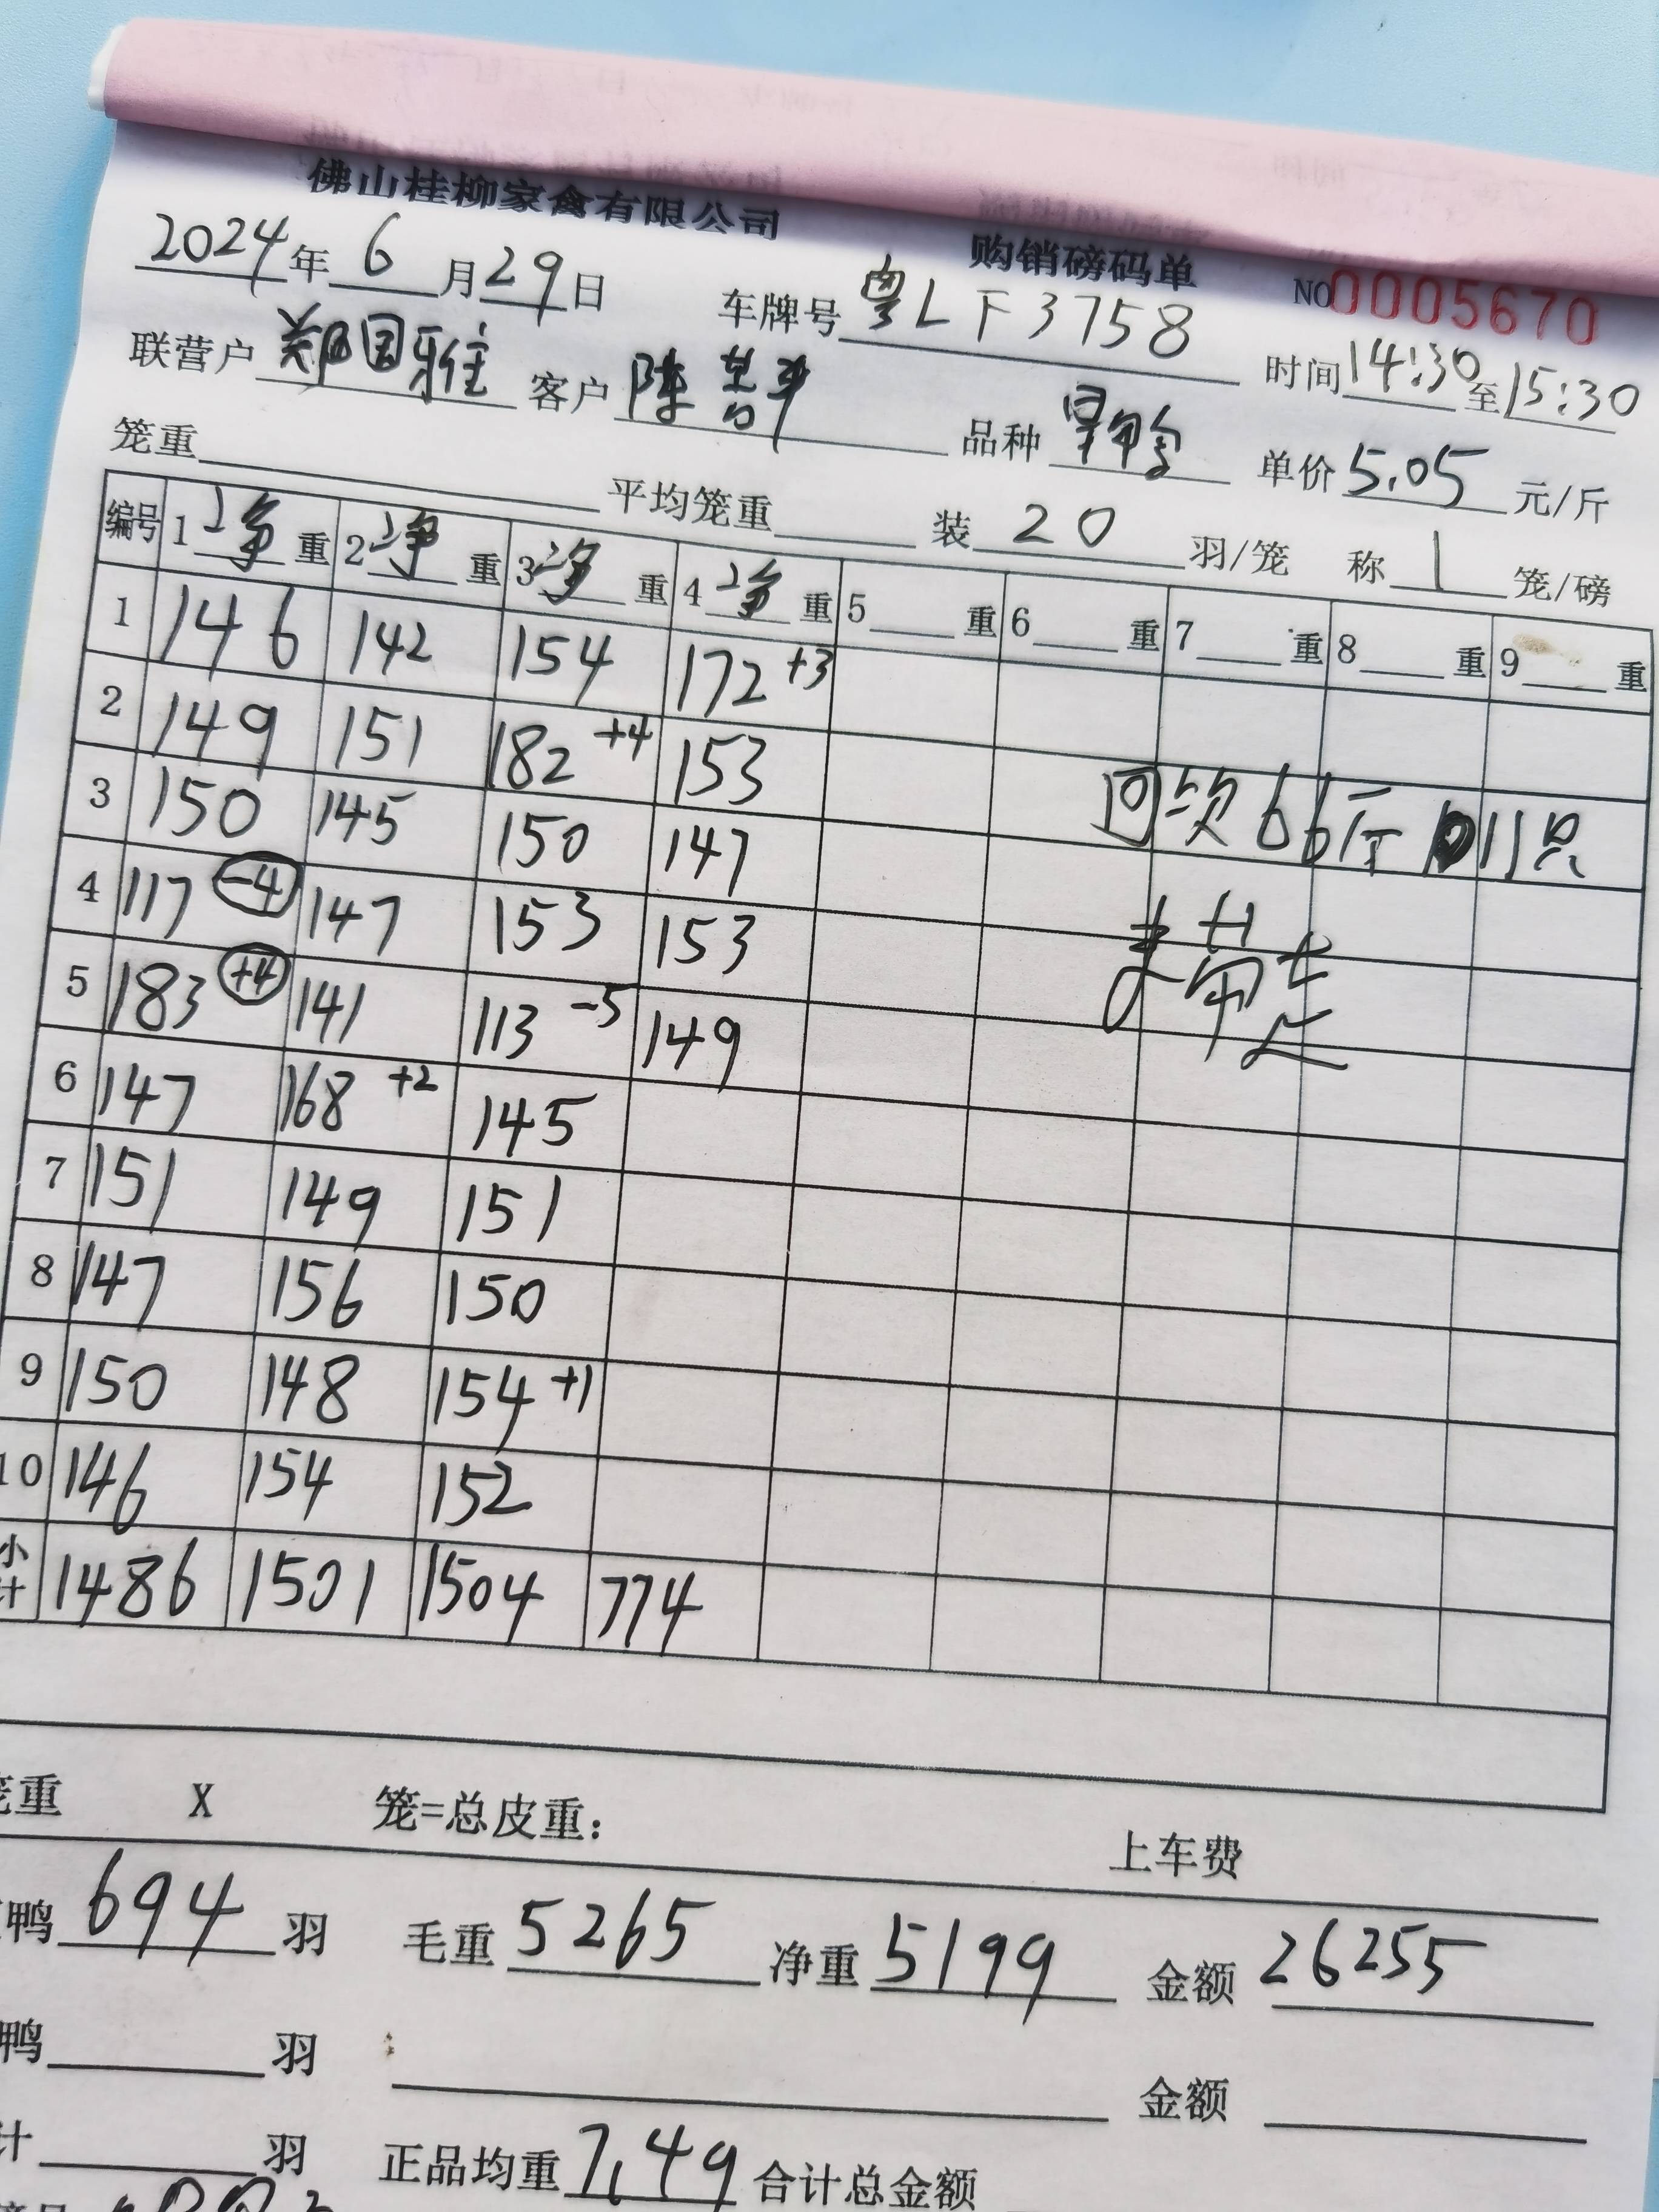 佛山桂柳家禽有限公司 购销磅码单 NO 0005670
2024年6月29日 车牌号 粤LF3758 时间14:30至15:30
联营户 郑国雅 客户 陈 品种 单价5.05元/斤
笼重 平均笼重 装20羽/笼 称1笼/磅
编号 1净重 2净重 3净重 4净重 5重 6重 7重 8重 9重
1 146 142 154 172+3
2 149 151 182+4 153
3 150 145 150 147 回欠66斤 11只
4 117-4 147 153 153 未带走
5 183+4 141 113-5 149
6 147 168+2 145
7 151 149 151
8 147 156 150
9 150 148 154+1
10 146 154 152
小计 1486 1501 1504 774
重 X 笼=总皮重: 上车费
鸭694羽 毛重5265 净重5199 金额26255
鸭 羽 金额
计 羽 正品均重7.49 合计总金额